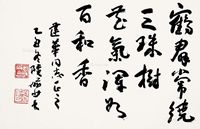 鶴群常繞
三珠樹
花氣渾如
百和香
華同志正之
乙丑冬